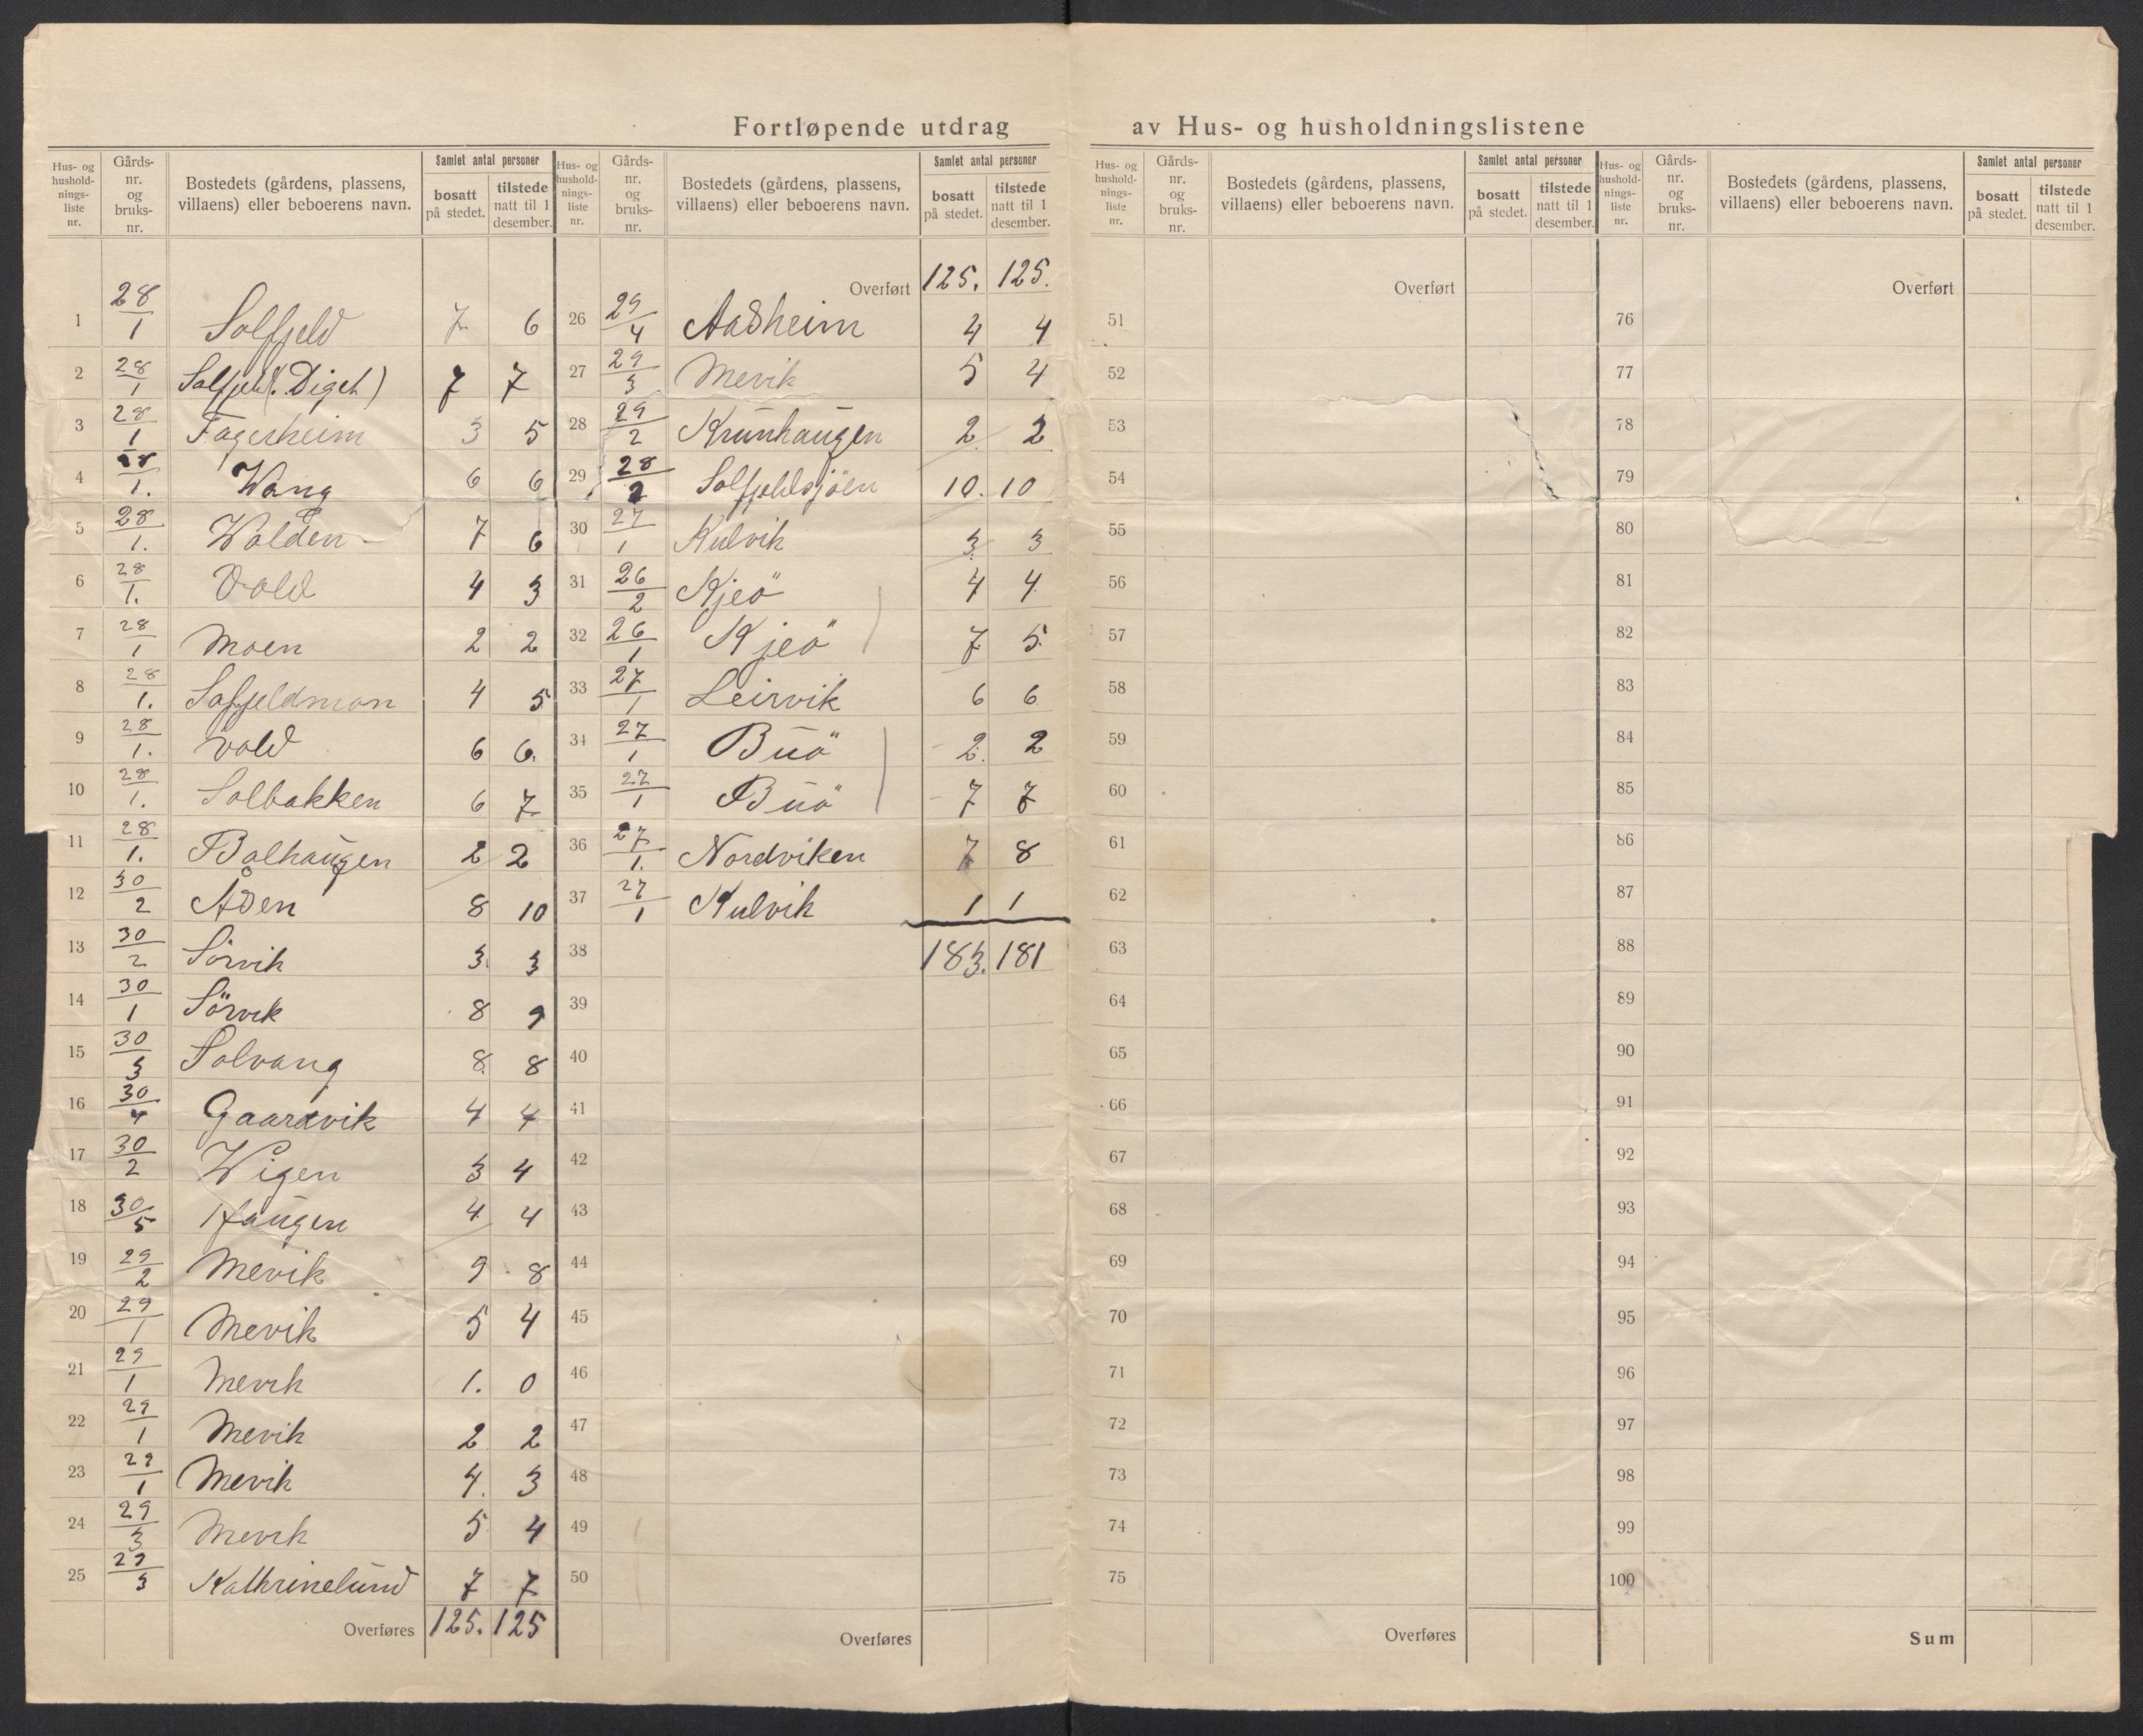 Fortløpende utdrag av Hus- og husholdningslistene
Hus- og husholdnings-liste nr. | Gårds-nr. og bruks-nr. | Bostedets (gårdens, plassens, villaens) eller beboerens navn. | Samlet antal personer | bosatt på stedet. | tilstede natt til 1 desember.
1 28/1 Solfjeld 7 6
2 28/1 Solfjeld (Diget) 7 7
3 28/1 Fagerheim 3 5
4 28/1. Wang 6 6
5 28/1. Wolden 7 6
6 28/1. Vold 4 3
7 28/1 Moen 2 2
8 28/1. Solfjeldmon 4 5
9 28/1. Vold 6 6.
10 28/1. Solbakken 6 7
11 28/1. Bolhaugen 2 2
12 30/2 Åsen 8 10
13 30/2 Sörvik 3. 3
14 30/1 Sörvik 8 9
15 30/3 Solvang 8. 8
16 30/4 Gaardvik 4 4
17 30/2 Wigen 3 4
18 30/5 Haugen 4 4
19 29/2 Mevik 9 8
20 29/1 Mevik 5 4
21 29/1 Mevik 1. 0
22 29/1 Mevik 2 2
23 29/1 Mevik 4. 3
24 29/3 Mevik 5 4
25 29/3 Kathrinelund 7 7
Overføres 125. 125
Hus- og husholdnings-liste nr. | Gårds-nr. og bruks-nr. | Bostedets (gårdens, plassens, villaens) eller beboerens navn. | Samlet antal personer | bosatt på stedet. | tilstede natt til 1 desember.
Overført 125. 125.
26 29/4 Aasheim 4 4
27 29/3 Mevik 5 4
28 29/2 Krunhaugen 2 2
29 28/2 Solfjeldsjöen 10. 10
30 27/1 Kulvik 3 3
31 26/2 Kjeö 4 4
32 26/1 Kjeö 7 5.
33 27/1 Leirvik 6 6
34 27/1 Buö 2. 2
35 27/1 Buö 7 7
36 27/1. Nordviken 7 8
37 27/1 Kulvik 1 1
38 183. 181
39
40
41
42
43
44
45
46
47
48
49
50
Overføres
Hus- og husholdnings-liste nr. | Gårds-nr. og bruks-nr. | Bostedets (gårdens, plassens, villaens) eller beboerens navn. | Samlet antal personer | bosatt på stedet. | tilstede natt til 1 desember.
Overført
51
52
53
54
55
56
57
58
59
60
61
62
63
64
65
66
67
68
69
70
71
72
73
74
75
Overføres
Hus- og husholdnings-liste nr. | Gårds-nr. og bruks-nr. | Bostedets (gårdens, plassens, villaens) eller beboerens navn. | Samlet antal personer | bosatt på stedet. | tilstede natt til 1 desember.
Overført
76
77
78
79
80
81
82
83
84
85
86
87
88
89
90
91
92
93
94
95
96
97
98
99
100
Sum